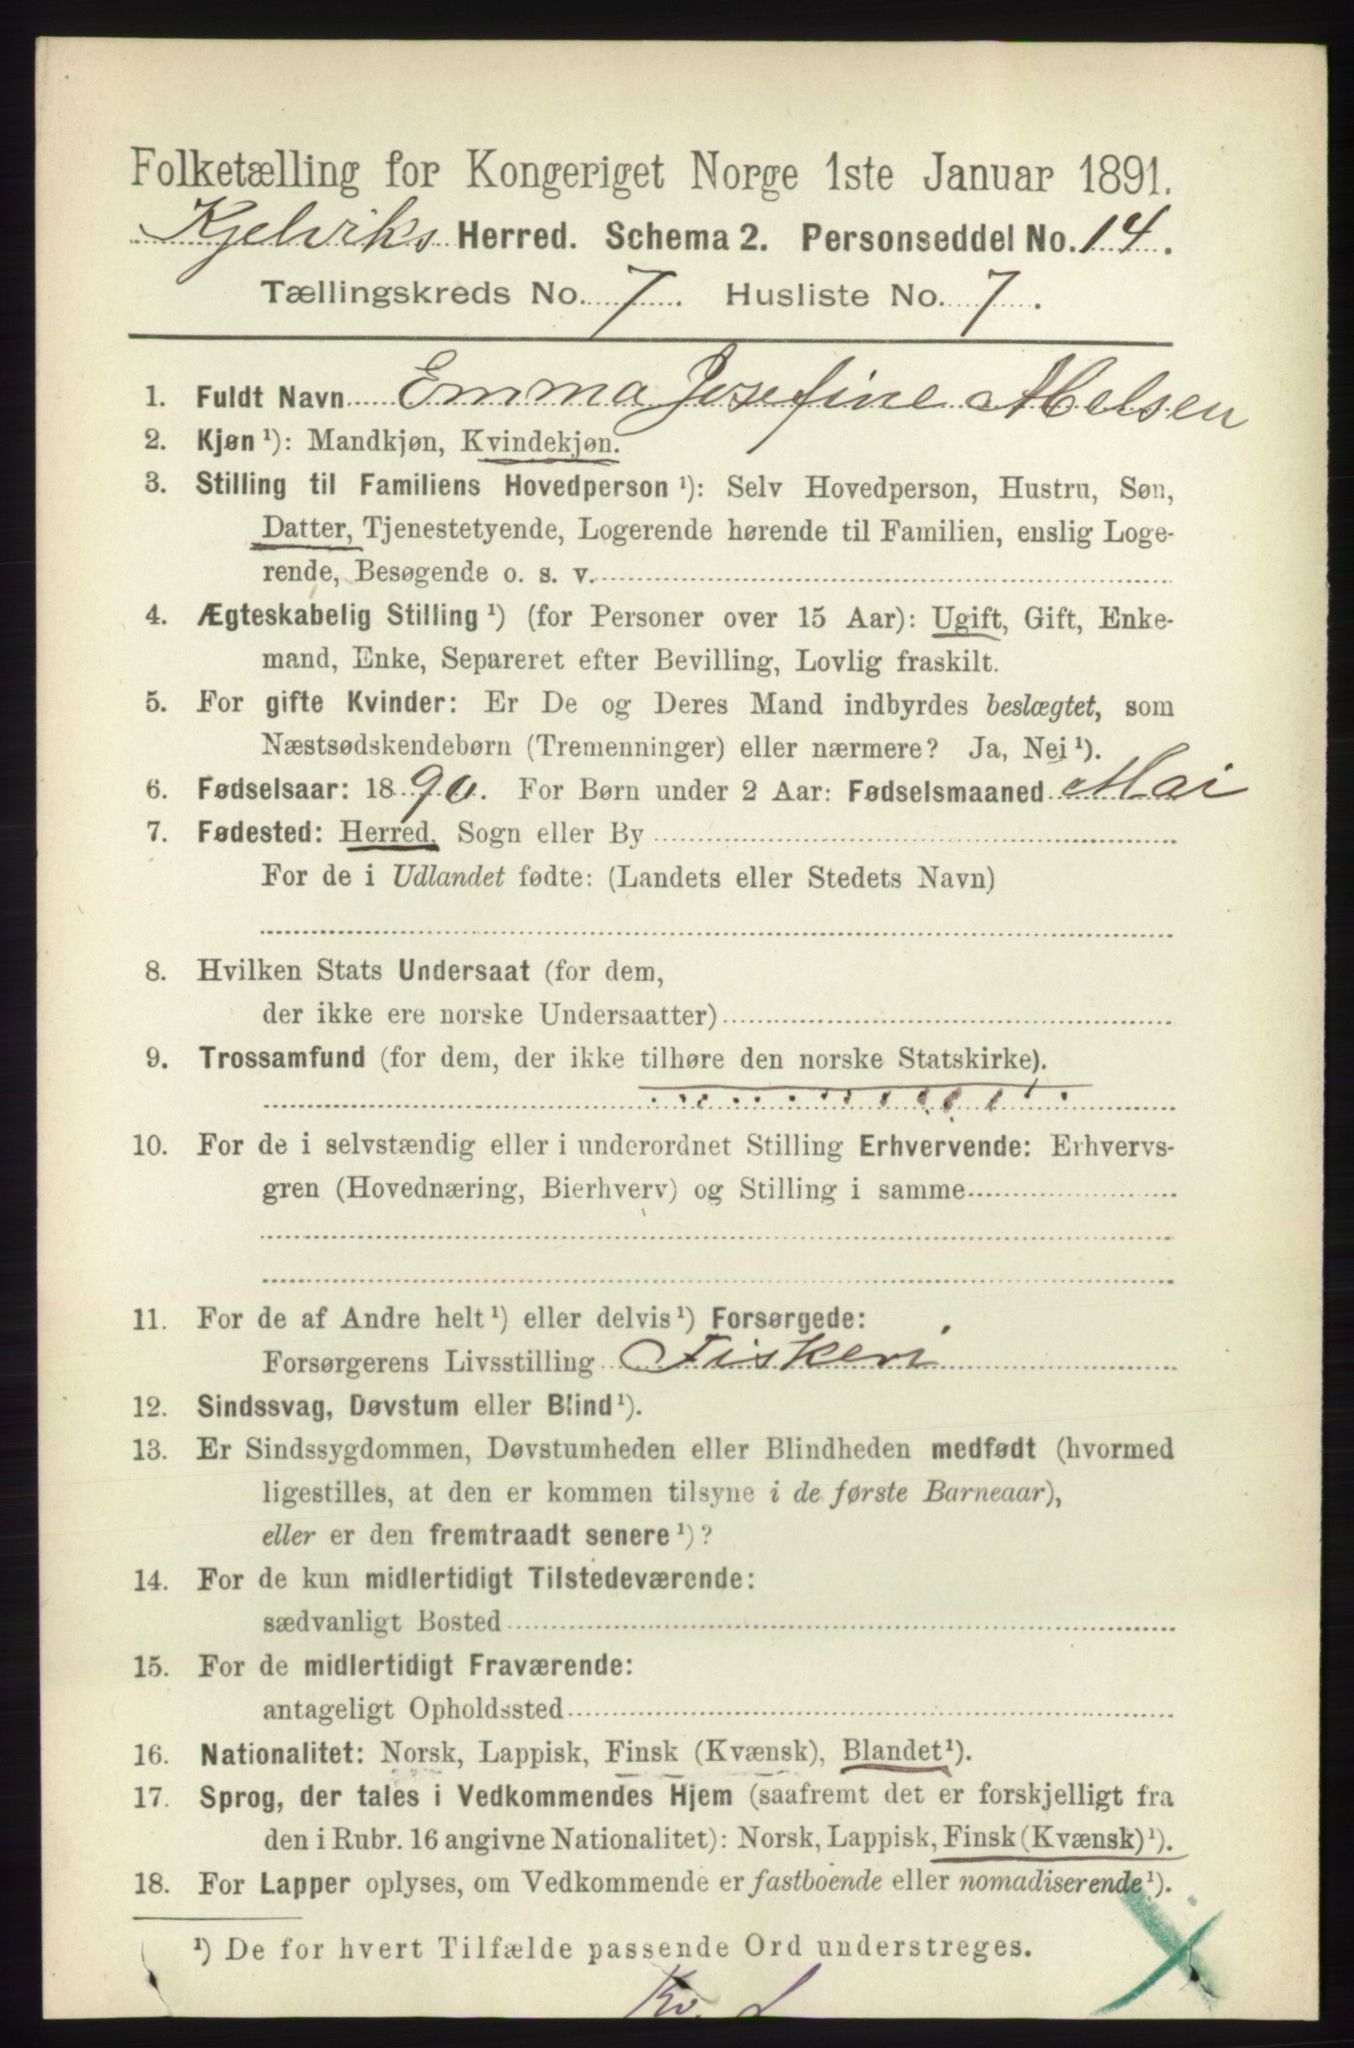 Folketælling for Kongeriget Norge 1ste Januar 1891.
Kjelviks Herred. Schema 2. Personseddel No. 14.
Tællingskreds No. 7. Husliste No. 7.
1. Fuldt Navn Emma Josefine Melsen
2. Kjøn ¹): Mandkjøn, Kvindekjøn.
3. Stilling til Familiens Hovedperson ¹): Selv Hovedperson, Hustru, Søn,
Datter, Tjenestetyende, Logerende hørende til Familien, enslig Loge-
rende, Besøgende o. s. v.
4. Ægteskabelig Stilling ¹) (for Personer over 15 Aar): Ugift, Gift, Enke-
mand, Enke, Separeret efter Bevilling, Lovlig fraskilt.
5. For gifte Kvinder: Er De og Deres Mand indbyrdes beslægtet, som
Næstsødskendebørn (Tremenninger) eller nærmere? Ja, Nei ¹).
6. Fødselsaar: 1890. For Børn under 2 Aar: Fødselsmaaned Mai
7. Fødested: Herred, Sogn eller By
For de i Udlandet fødte: (Landets eller Stedets Navn)
8. Hvilken Stats Undersaat (for dem,
der ikke ere norske Undersaatter)
9. Trossamfund (for dem, der ikke tilhøre den norske Statskirke).
10. For de i selvstændig eller i underordnet Stilling Erhvervende: Erhvervs-
gren (Hovednæring, Bierhverv) og Stilling i samme
11. For de af Andre helt ¹) eller delvis ¹) Forsørgede:
Forsørgerens Livsstilling Fiskeri
12. Sindssvag, Døvstum eller Blind ¹).
13. Er Sindssygdommen, Døvstumheden eller Blindheden medfødt (hvormed
ligestilles, at den er kommen tilsyne i de første Barneaar),
eller er den fremtraadt senere ¹)?
14. For de kun midlertidigt Tilstedeværende:
sædvanligt Bosted
15. For de midlertidigt Fraværende:
antageligt Opholdssted
16. Nationalitet: Norsk, Lappisk, Finsk (Kvænsk), Blandet ¹).
17. Sprog, der tales i Vedkommendes Hjem (saafremt det er forskjelligt fra
den i Rubr. 16 angivne Nationalitet): Norsk, Lappisk, Finsk (Kvænsk) ¹).
18. For Lapper oplyses, om Vedkommende er fastboende eller nomadiserende ¹).
¹) De for hvert Tilfælde passende Ord understreges.
Kv. L